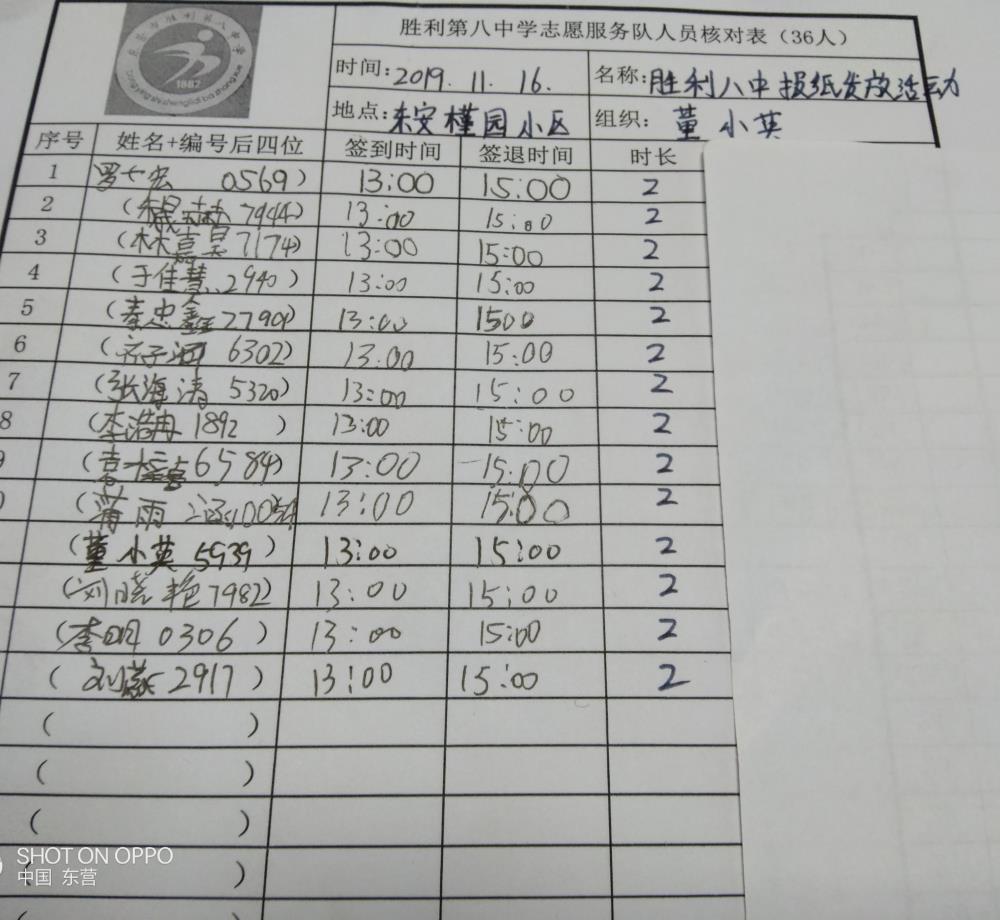 胜利第八中学志愿服务队人员核对表（36人）
时间:2019.11.16. 名称:胜利八中报纸发放活动
地点:东安槿园小区 组织: 董小英
1887
序号 姓名+编号后四位 签到时间 签退时间 时长
1 0569) 13:00 15:00 2
2 ( 7944) 13:00 15:00 2
3 (林嘉昊7174) 13:00 15:00 2
4 (于佳慧2940) 13:00 15:00 2
5 (秦忠鑫2790) 13:00 1500 2
6 (齐子涵 6302) 13:00 15:00 2
7 (张海涛 5320) 13:00 15:00 2
8 (李浩冉 1892 ) 13:00 15:00 2
( 6584) 13:00 15:00 2
(蒲雨涵 13:00 15:00 2
(董小英 5939 ) 13:00 15:00 2
(刘晓艳7982) 13:00 15:00 2
(李明 0306 ) 13:00 15:00 2
( 刘 2917 ) 13:00 15:00 2
( )
( )
( )
( )
SHOT ON OPPO
中国 东营